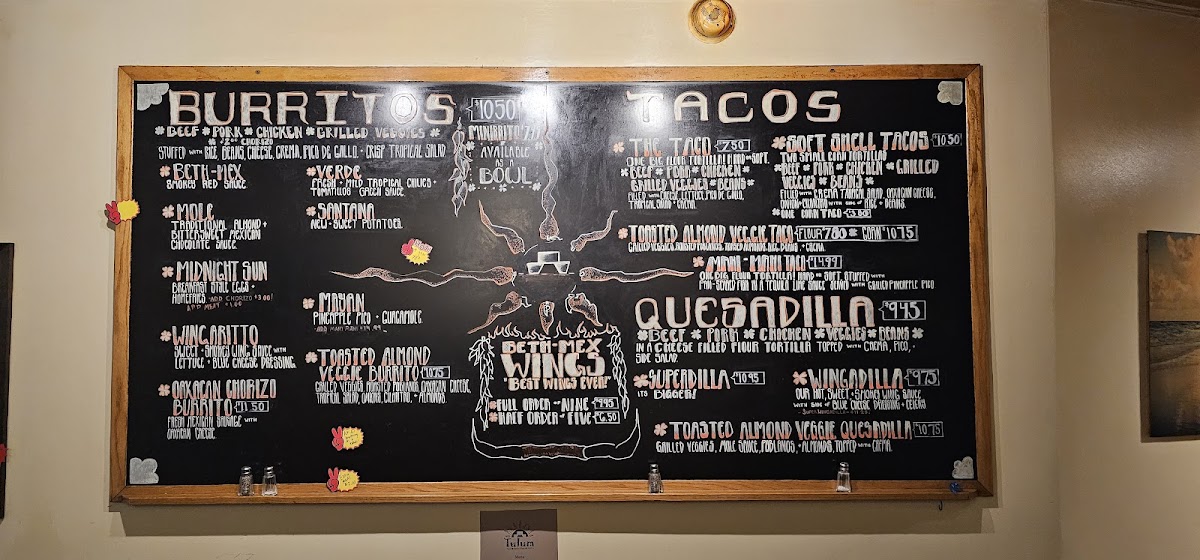 BURRITOS $10.50
*BEEF*PORK*CHICKEN*GRILLED VEGGIES*
CHORIZO
STUFFED WITH RICE, BEANS, CHEESE, CREMA, PICO DE GALLO, + CRISP TROPICAL SALAD
MINIRITO
AVAILABLE
AS A
BOWL
*BETH-MEX
SMOKEY RED SAUCE.
*MOLE
TRADITIONAL ALMOND +
BITTERSWEET MEXICAN
CHOCOLATE SAUCE.
*MIDNIGHT SUN
BREAKFAST STYLE EGGS +
HOMEFRIES. ADD CHORIZO $3.00!
ADD MEAT
*WINGARITTO
SWEET + SMOKEY WING SAUCE WITH
LETTUCE + BLUE CHEESE DRESSING.
*OAXACAN CHORIZO
BURRITO $11.50
FRESH MEXICAN SAUSAGE WITH
OAXACAN CHEESE.
*VERDE
FRESH + MILD TROPICAL CHILIES +
TOMATILLOS GREEN SAUCE.
*SANTANA
NEW-SWEET POTATOES.
*MAYAN
PINEAPPLE PICO + GUACAMOLE.
*TOASTED ALMOND
VEGGIE BURRITO $10.75
GRILLED VEGGIES, ROASTED POBLANOS, OAXACAN CHEESE,
TROPICAL SALAD, CREMA, CILANTRO, + ALMONDS.
BETH-MEX
WINGS
"BEST WINGS EVER!"
*FULL ORDER OF NINE $9.95
*HALF ORDER OF FIVE $6.50
TACOS
*THE TACO 7.50
ONE BIG FLOUR TORTILLA! HARD OR SOFT.
*BEEF*PORK*CHICKEN*
GRILLED VEGGIES*BEANS*
FILLED WITH CHEESE, LETTUCE, PICO DE GALLO,
TROPICAL SALAD + CREMA.
*SOFT SHELL TACOS $10.50
TWO SMALL CORN TORTILLAS
*BEEF*PORK*CHICKEN*GRILLED
VEGGIES*BEANS*
FILLED WITH CREMA, TROPICAL SALAD, OAXACAN CHEESE,
ONION + CILANTRO WITH SIDE OF RICE + BEANS.
*ONE CORN TACO $3.50
*TOASTED ALMOND VEGGIE TACO FLOUR $7.80 OR CORN $10.75
GRILLED VEGGIES, ROASTED POBLANOS, TOASTED ALMONDS, RICE, BEANS, + CREMA.
*MAHI-MAHI TACO $14.99
ONE BIG FLOUR TORTILLA! HARD OR SOFT, STUFFED WITH
PAN-SEARED FISH IN A TEQUILA LIME SAUCE SERVED WITH GARLICY PINEAPPLE PICO
QUESADILLA $9.45
*BEEF*PORK*CHICKEN*VEGGIES*BEANS*
IN A CHEESE FILLED FLOUR TORTILLA TOPPED WITH CREMA, PICO, +
SIDE SALAD.
*SUPERDILLA $10.95
ITS BIGGER!
*WINGADILLA $9.75
OUR HOT, SWEET + SMOKEY WING SAUCE
WITH SIDE OF BLUE CHEESE DRESSING + CELERY
*TOASTED ALMOND VEGGIE QUESADILLA $10.75
GRILLED VEGGIES, MOLE SAUCE, POBLANOS, + ALMONDS, TOPPED WITH CREMA.
Tulum